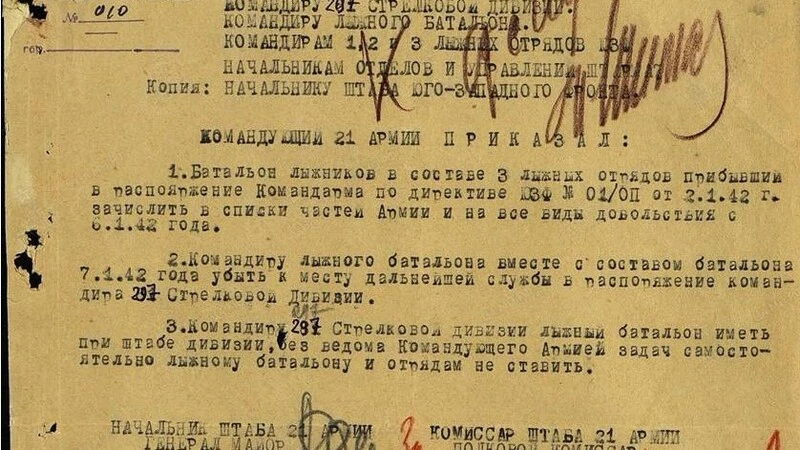 № 010
гор.
КОМАНДИРУ 297 СТРЕЛКОВОЙ ДИВИЗИИ.
КОМАНДИРУ ЛЫЖНОГО БАТАЛЬОНА.
КОМАНДИРАМ 1,2 и 3 ЛЫЖНЫХ ОТРЯДОВ ЮЗФ
НАЧАЛЬНИКАМ ОТДЕЛОВ И УПРАВЛЕНИЙ
Копия: НАЧАЛЬНИКУ ШТАБА ЮГО-ЗАПАДНОГО ФРОНТА.
КОМАНДУЮЩИЙ 21 АРМИИ ПРИКАЗАЛ:
1.Батальон лыжников в составе 3 лыжных отрядов прибывший
в распоряжение Командарма по директиве ЮЗФ № 01/ОП от 2.1.42 г.
зачислить в списки частей Армии и на все виды довольствия с
6.1.42 года.
2.Командиру лыжного батальона вместе с составом батальона
7.1.42 года убыть к месту дальнейшей службы в распоряжение коман-
дира 297 Стрелковой Дивизии.
297
3.Командиру 297 Стрелковой дивизии лыжный батальон иметь
при штабе дивизии, без ведома Командующего Армией задач самосто-
ятельно лыжному батальону и отрядам не ставить.
НАЧАЛЬНИК ШТАБА 21 АРМИИ
КОМИССАР ШТАБА 21 АРМИИ
ГЕНЕРАЛ МАЙОР
ПОЛКОВОЙ КОМИССАР